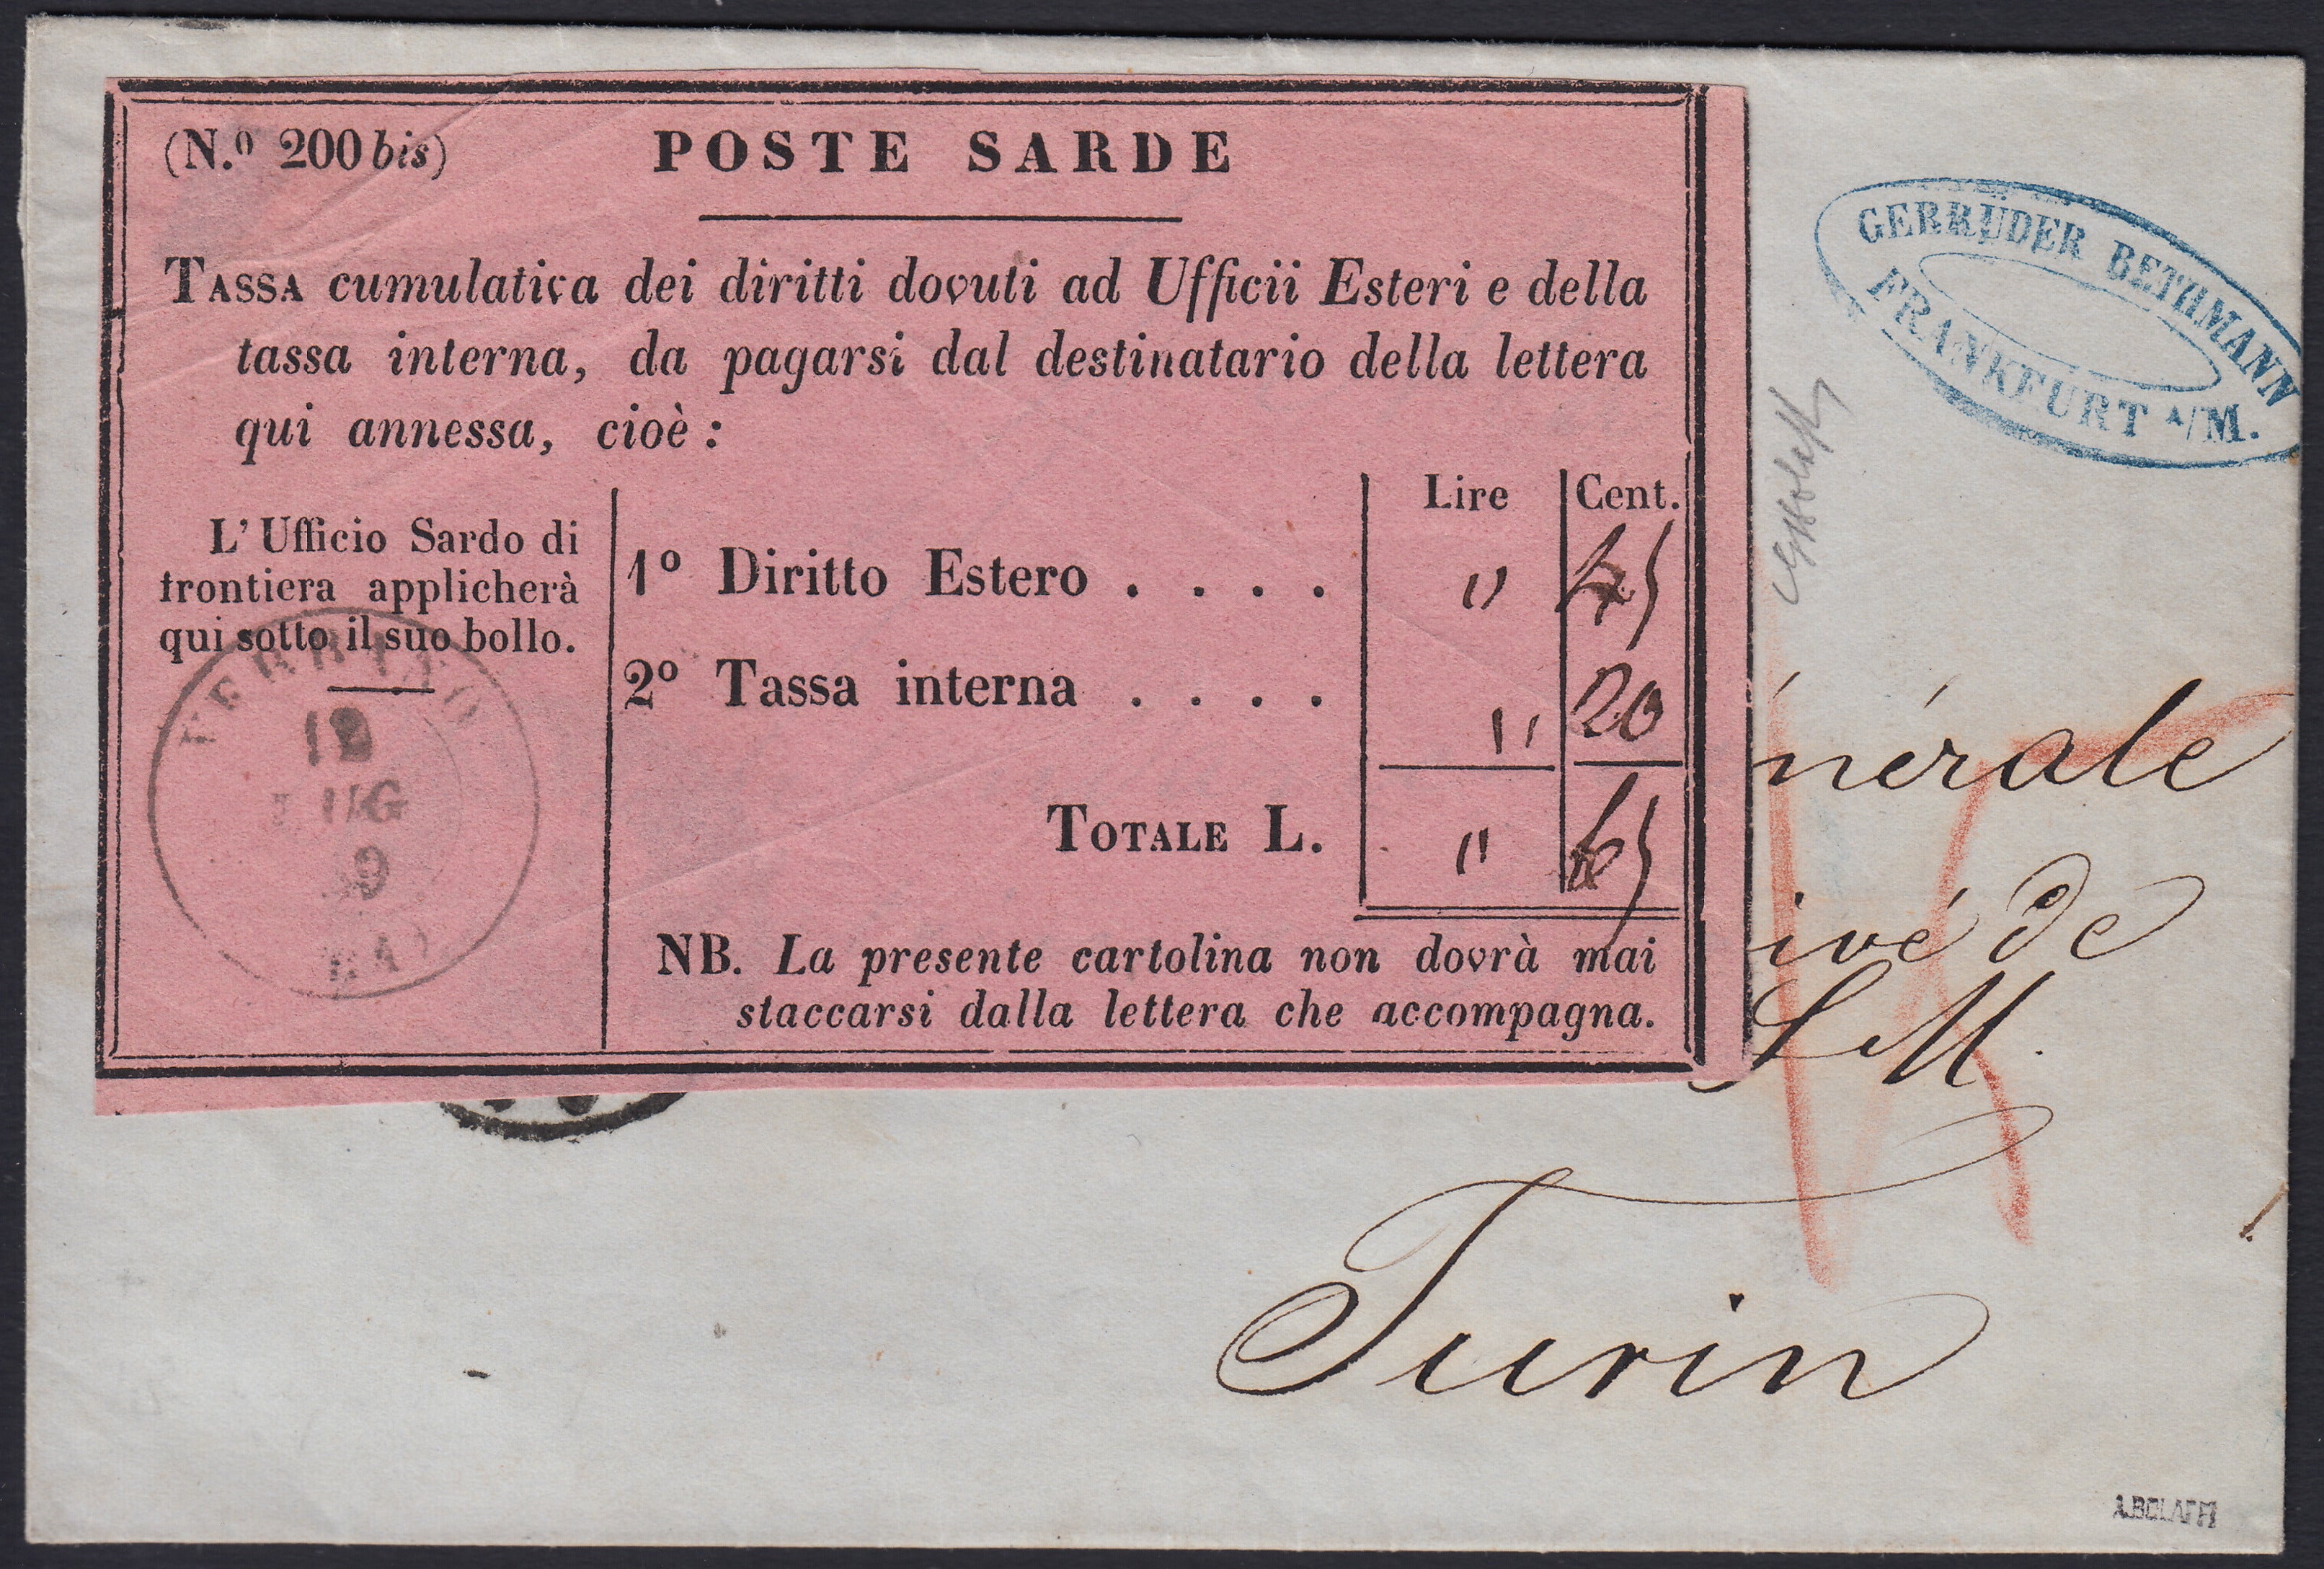 (N.º 200 bis) POSTE SARDE
TASSA cumulativa dei diritti dovuti ad Ufficii Esteri e della
tassa interna, da pagarsi dal destinatario della lettera
qui annessa, cioè :
L' Ufficio Sardo di
frontiera applicherà
qui sotto il suo bollo.
Lire Cent.
1º Diritto Estero . . . . " 45
2º Tassa interna . . . . " 20
TOTALE L. " 65
NB. La presente cartolina non dovrà mai
staccarsi dalla lettera che accompagna.
12
LUG
9
GEBRÜDER BETHMANN
FRANKFURT A/M.
nérale
ivé de
S. M.
Turin
A.BOLAFFI